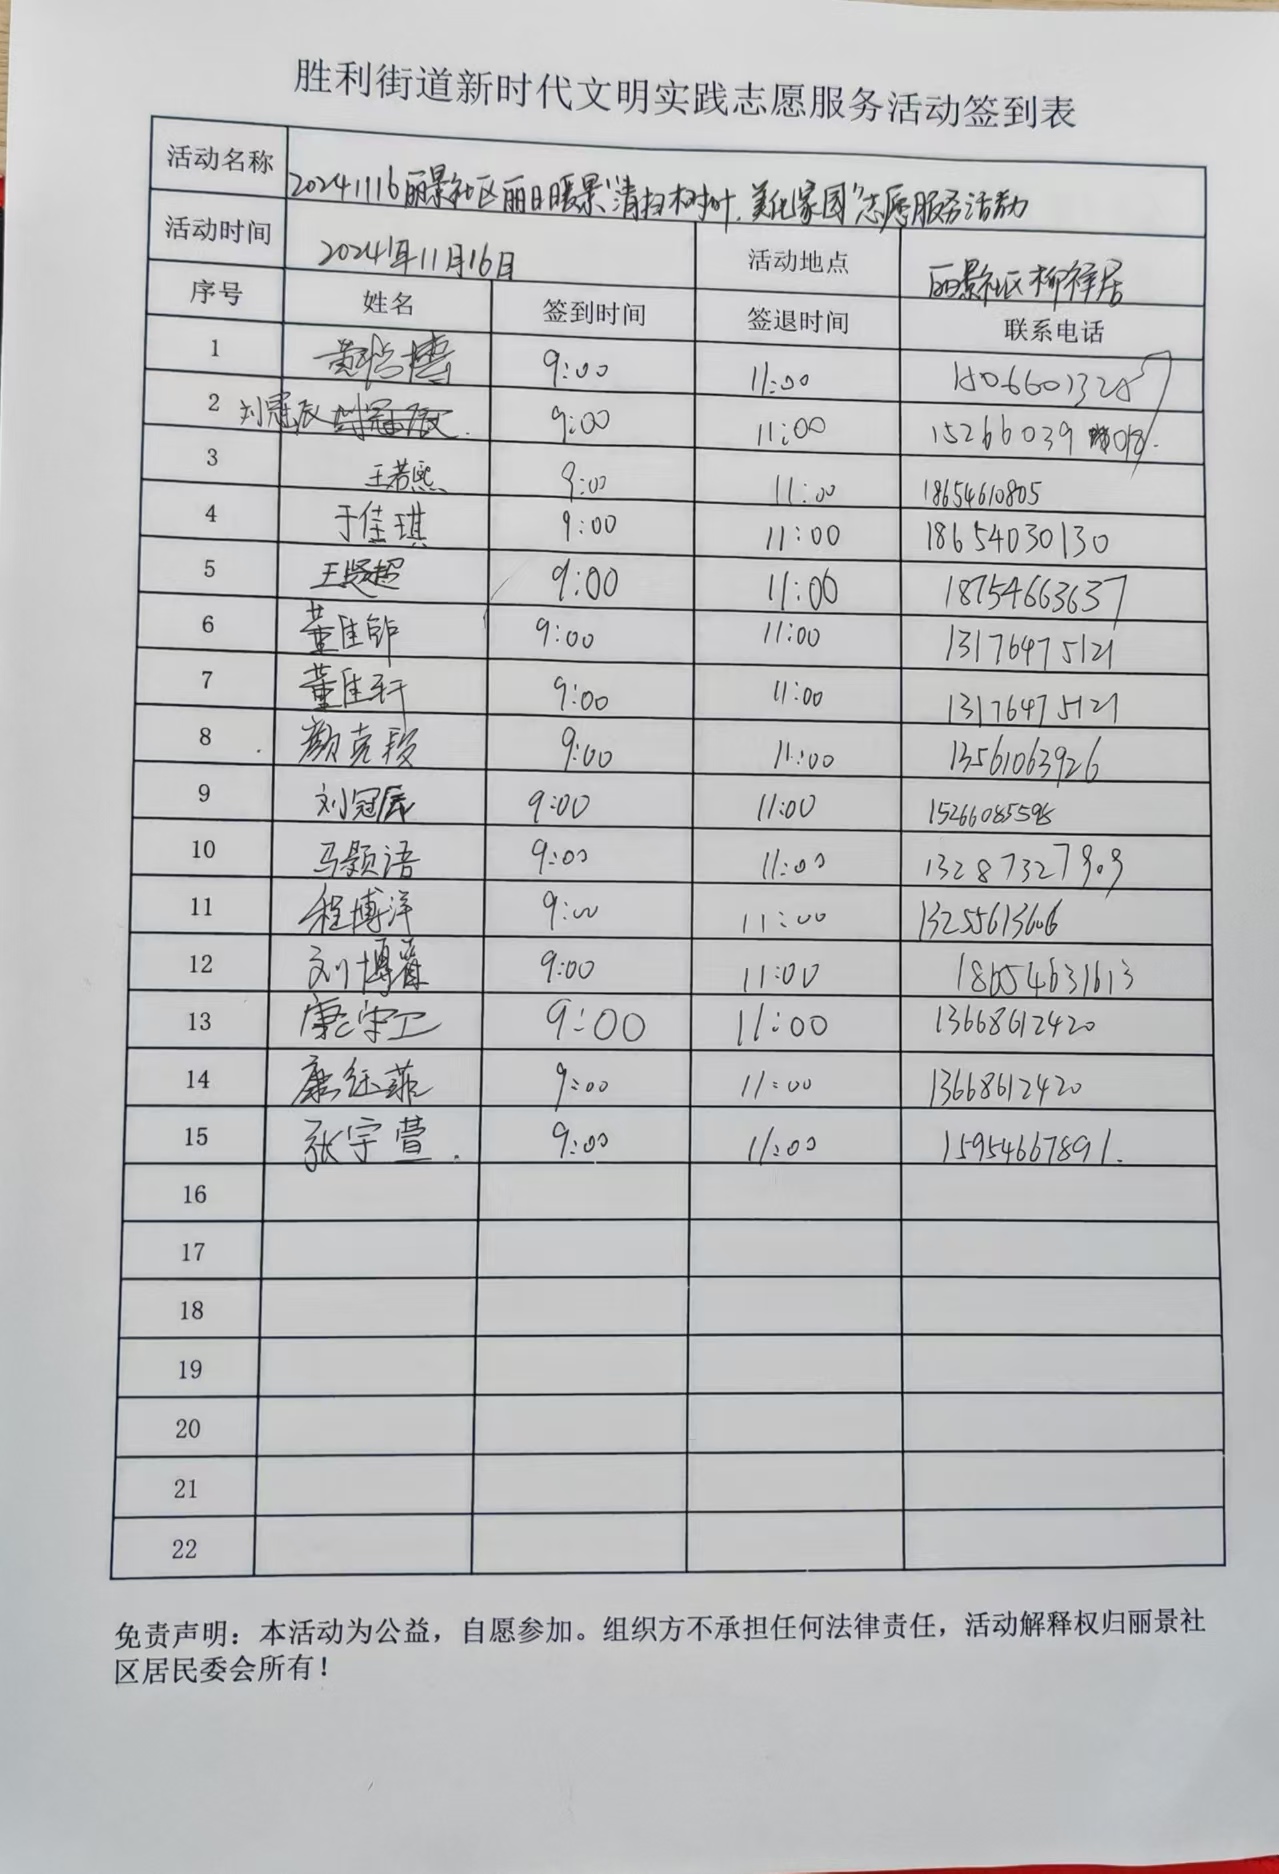 胜利街道新时代文明实践志愿服务活动签到表
活动名称 20241116丽景社区丽日暖景"清扫树叶,美化家园"志愿服务活动
活动时间 2024年11月16日 活动地点 丽景社区柳祥居
序号 姓名 签到时间 签退时间 联系电话
1 博 9:00 11:00
2 刘冠辰 9:00 11:00 15266039
3 王若熙 9:00 11:00 18654610805
4 于佳琪 9:00 11:00 18654030130
5 王贤超 9:00 11:00 18754663637
6 董佳 9:00 11:00 13176475121
7 董佳轩 9:00 11:00 13176475121
8 颜克段 9:00 11:00 13561063926
9 刘冠辰 9:00 11:00 15266085598
10 马颢语 9:00 11:00 13287327909
11 程博洋 9:00 11:00 13255613606
12 刘博 9:00 11:00 18654631613
13 康守卫 9:00 11:00 13668612420
14 康钰菲 9:00 11:00 13668612420
15 张宇萱. 9:00 11:00 15954667891.
16
17
18
19
20
21
22
免责声明:本活动为公益,自愿参加。组织方不承担任何法律责任,活动解释权归丽景社
区居民委会所有!